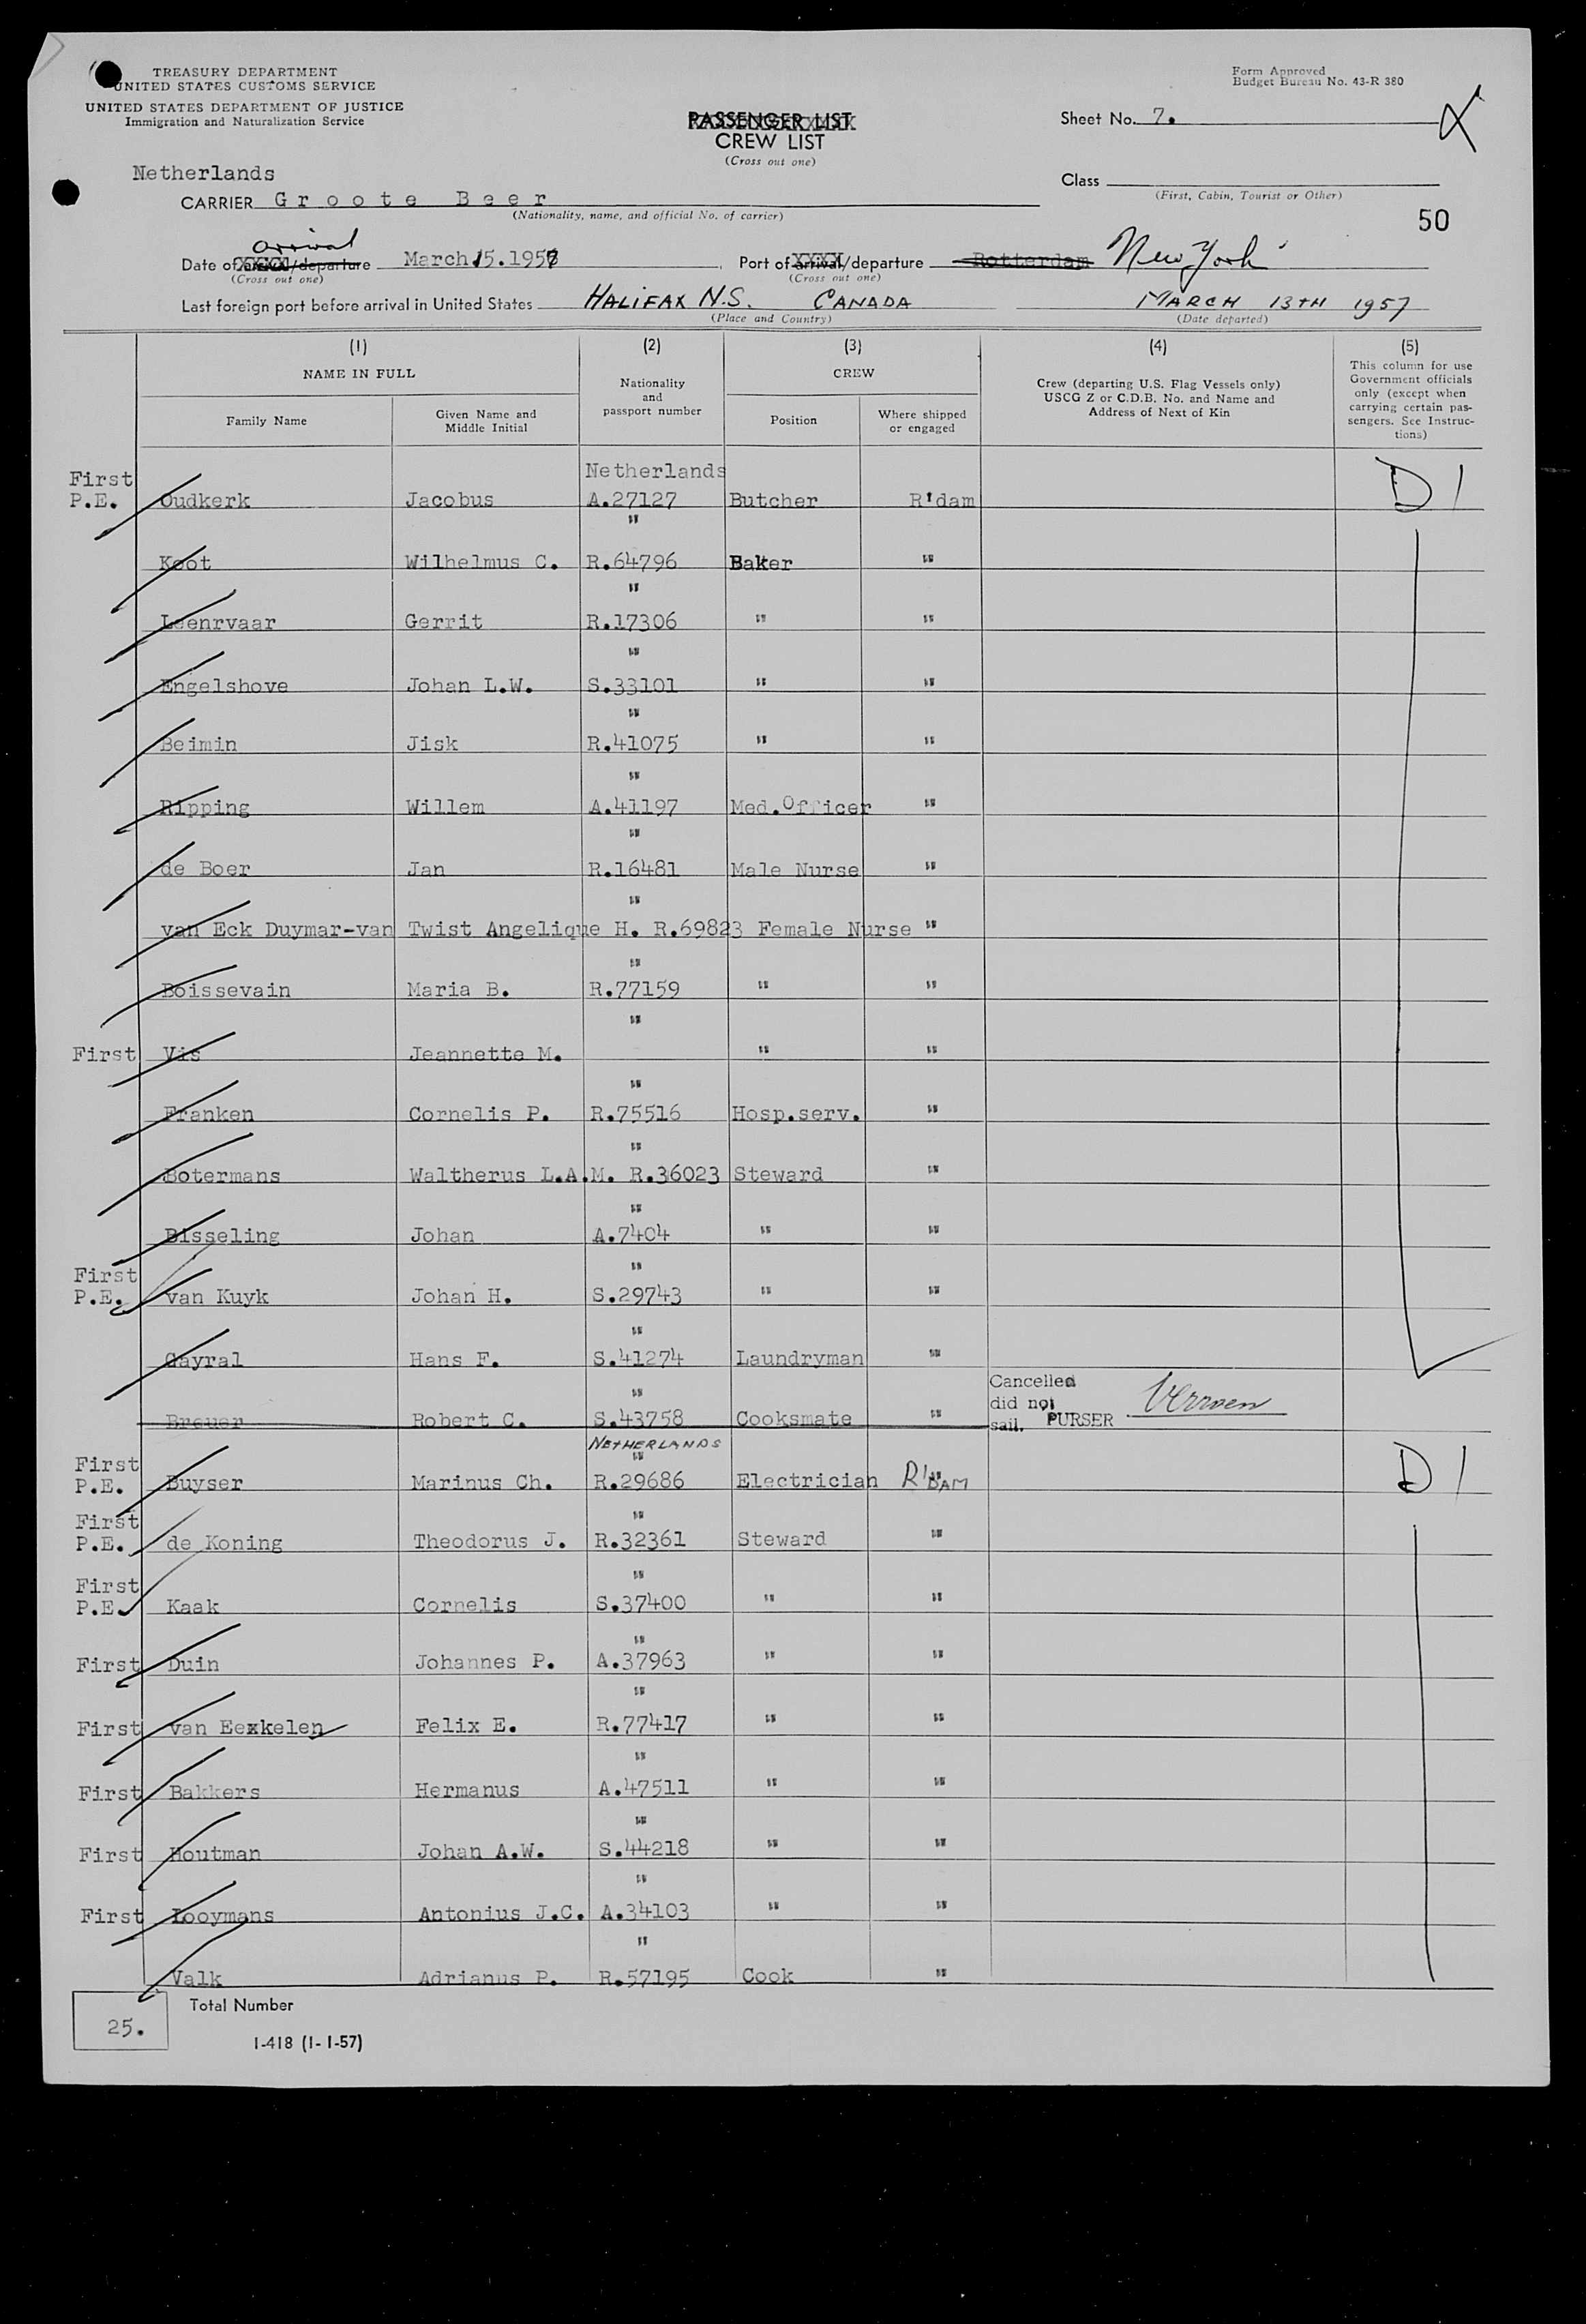 TREASURY DEPARTMENT
UNITED STATES CUSTOMS SERVICE
UNITED STATES DEPARTMENT OF JUSTICE
Immigration and Naturalization Service
Form Approved
Budget Bureau No. 43-R 380
PASSENGER LIST
CREW LIST
(Cross out one)
Sheet No. 7.
Netherlands
CARRIER Groote Beer
(Nationality, name, and official No. of carrier)
Class
(First, Cabin, Tourist or Other)
50
arrival
Date of arrival/departure March 15.1957
(Cross out one)
Port of arrival/departure Rotterdam New York
(Cross out one)
Last foreign port before arrival in United States HALIFAX N.S. CANADA MARCH 13TH 1957
(Place and Country) (Date departed)
(1) (2) (3) (4) (5)
NAME IN FULL
Family Name
Given Name and Middle Initial
Nationality and passport number
CREW
Position
Where shipped or engaged
Crew (departing U.S. Flag Vessels only)
USCG Z or C.D.B. No. and Name and
Address of Next of Kin
This column for use
Government officials
only (except when
carrying certain pas-
sengers. See Instruc-
tions)
First Netherlands
P.E. Oudkerk Jacobus A.27127 Butcher R'dam D 1
"
Koot Wilhelmus C. R.64796 Baker "
"
Leenrvaar Gerrit R.17306 " "
"
Engelshove Johan L.W. S.33101 " "
"
Beimin Jisk R.41075 " "
"
Ripping Willem A.41197 Med.Officer "
"
de Boer Jan R.16481 Male Nurse "
"
van Eck Duymar-van Twist Angelique H. R.69823 Female Nurse "
"
Boissevain Maria B. R.77159 " "
"
First Vis Jeannette M. " "
"
Franken Cornelis P. R.75516 Hosp.serv. "
"
Botermans Waltherus L.A.M. R.36023 Steward "
"
Bisseling Johan A.7404 " "
First "
P.E. van Kuyk Johan H. S.29743 " "
"
Gayral Hans F. S.41274 Laundryman "
"
Breuer Robert C. S.43758 Cooksmate " Cancelled did not sail. PURSER
NETHERLANDS
First "
P.E. Buyser Marinus Ch. R.29686 Electrician R'DAM D 1
First "
P.E. de Koning Theodorus J. R.32361 Steward "
First "
P.E. Kaak Cornelis S.37400 " "
"
First Duin Johannes P. A.37963 " "
"
First van Eexkelen Felix E. R.77417 " "
"
First Bakkers Hermanus A.47511 " "
"
First Houtman Johan A.W. S.44218 " "
"
First Looymans Antonius J.C. A.34103 " "
"
Valk Adrianus P. R.57195 Cook "
25. Total Number
I-418 (1-1-57)